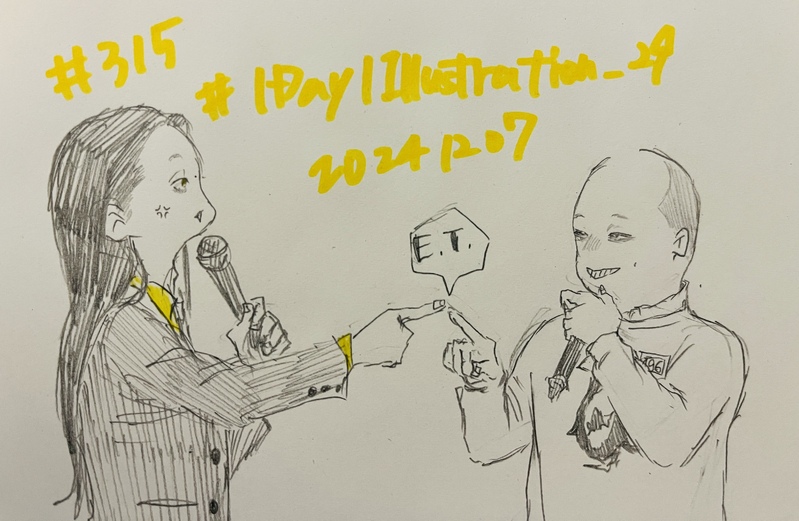 #315
#1Day1Illustration_24
20241207
E.T.